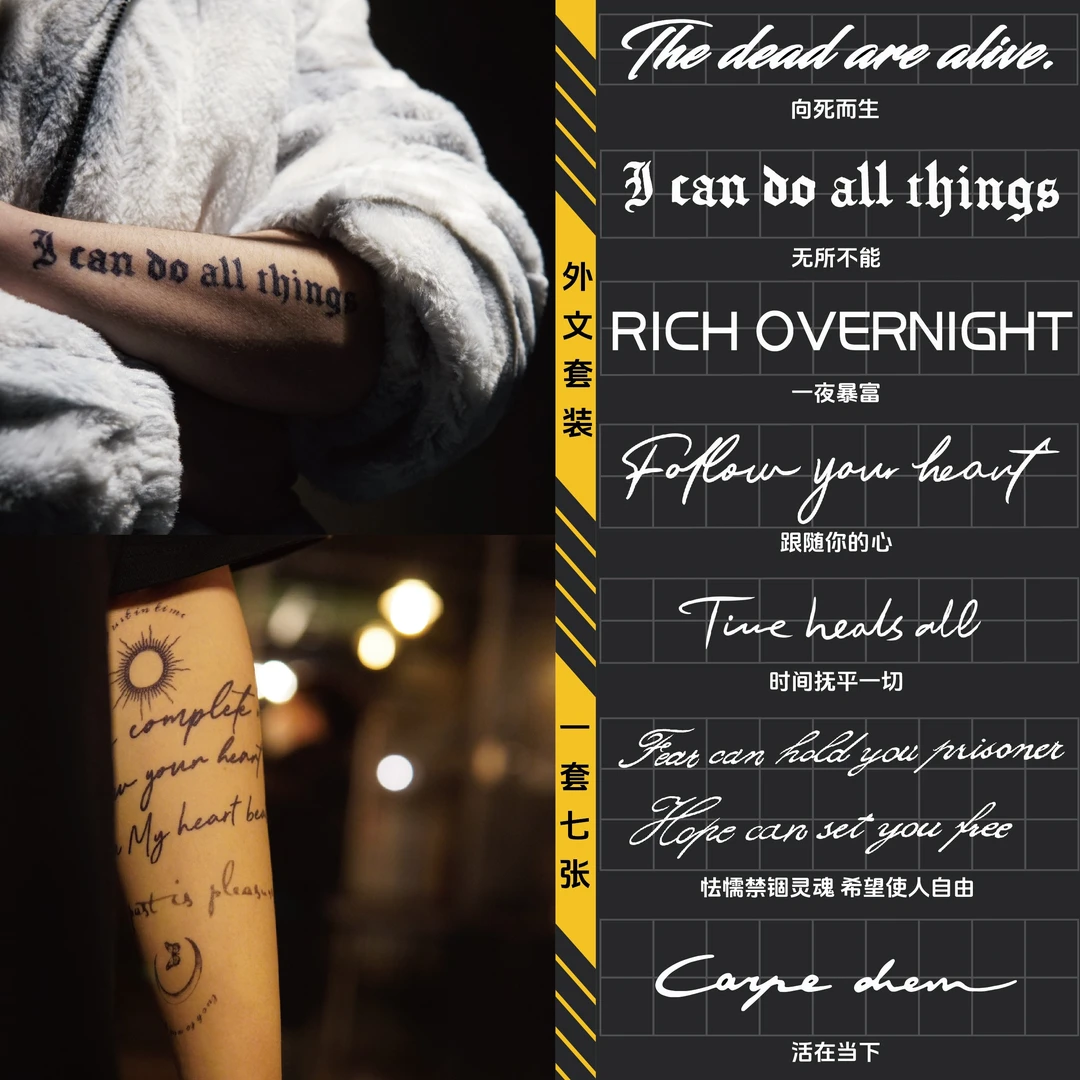 I can do all things
just in time
complete
your heart
My heart
is
外文套装
一套七张
The dead are alive.
向死而生
I can do all things
无所不能
RICH OVERNIGHT
一夜暴富
Follow your heart
跟随你的心
Time heals all
时间抚平一切
Fear can hold you prisoner
Hope can set you free
怯懦禁锢灵魂 希望使人自由
Carpe diem
活在当下